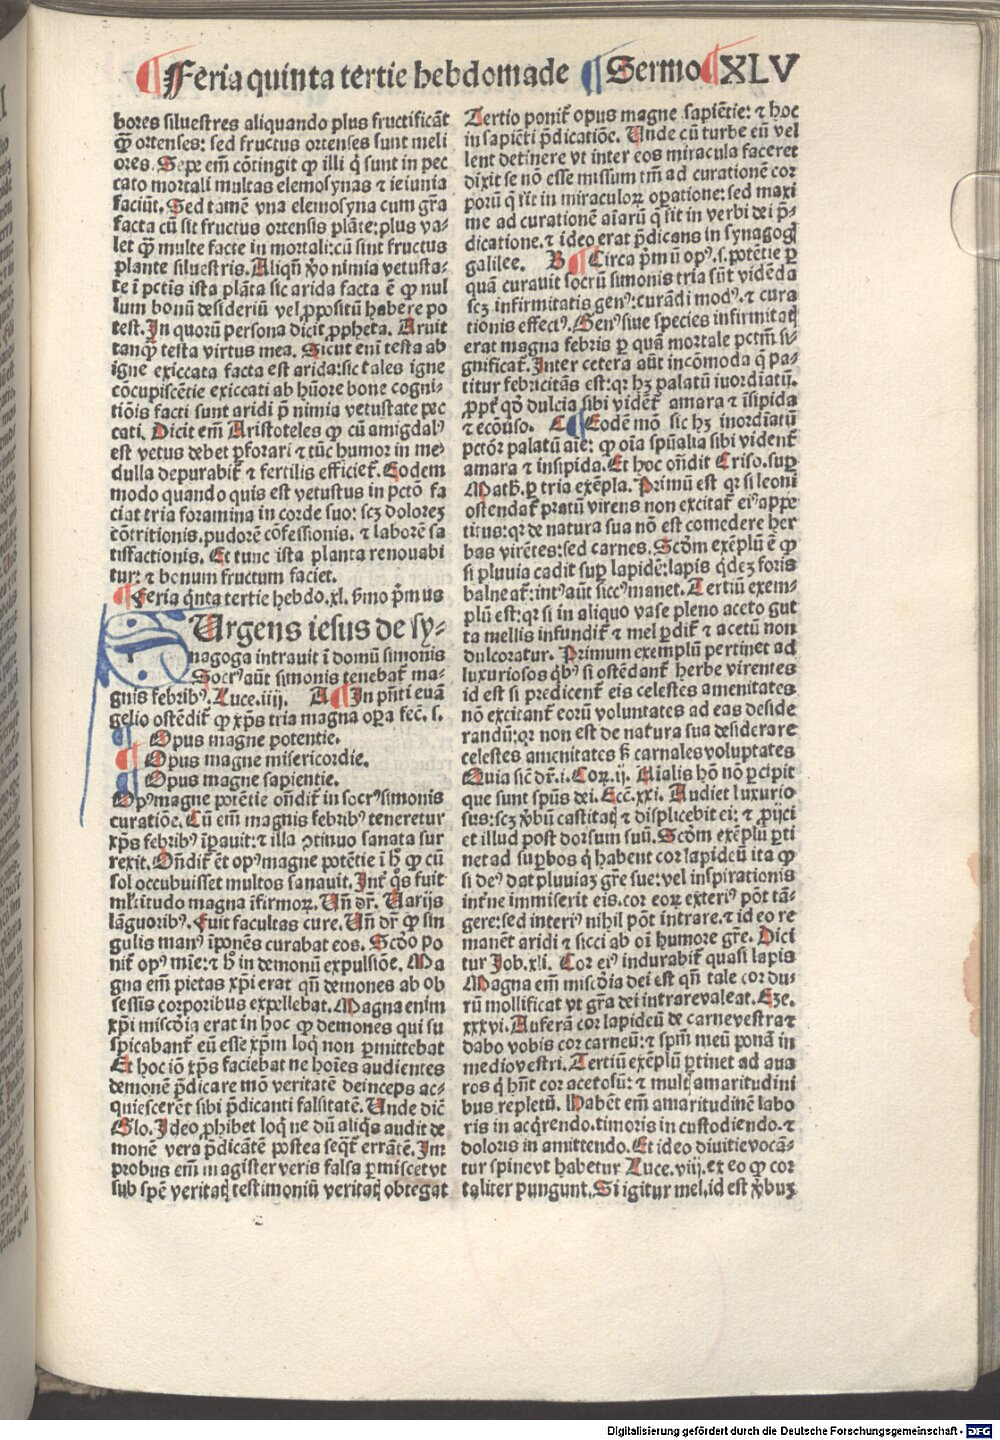 Feria quinta tertie hebdomade Sermo XLV
bores siluestres aliquando plus fructificāt
ꝙ̄ ortenses: sed fructus ortenses sunt meli
ores. Sepe em̄ cōtingit ꝙ illi q̇ sunt in pec
cato mortali multas elemosynas ⁊ ieiunia
faciūt. Sed tamē vna elemosyna cum gr̄a
facta cū sit fructus ortensis plāte: plus va-
let ꝙ̄ multe facte in mortali: cū sint fructus
plante siluestris. Aliqn̄ ꝟo nimia vetusta-
te ī pctīs ista plāta sic arida facta ē ꝙ nul
lum bonū desideriū vel ꝓpositū habere po
test. In quorū persona dicit ꝓpheta. Aruit
tanꝙ̄ testa virtus mea. Sicut enī testa ab
igne exiccata facta est arida: sic tales igne
cōcupiscētie exiccati ab hūore bone cogni-
tiōis facti sunt aridi p̄ nimia vetustate pec
cati. Dicit em̄ Aristoteles ꝙ cū amigdalꝰ
est vetus debet ꝑforari ⁊ tūc humor in me-
dulla depurabit̄ ⁊ fertilis efficiet̄. Eodem
modo quando quis est vetustus in pctō fa
ciat tria foramina in corde suo: scꝫ dolorez
cōtritionis, pudorē cōfessionis, ⁊ laborē sa
tisfactionis. Et tunc ista planta renouabi
tur: ⁊ bonum fructum faciet.
Feria q̇nta tertie hebdo. xl. s̄mo p̄mus
SUrgens iesus de sy-
nagoga intrauit ī domū simonis
Socrꝰ aūt simonis tenebat̄ ma-
gnis febribꝰ. Luce. iiij. A In pn̄ti euā
gelio ostēdit̄ ꝙ xp̄s tria magna oꝑa fec̄. s.
Opus magne potentie.
Opus magne misericordie.
Opus magne sapientie.
Opꝰ magne potētie on̄dit̄ in socrꝰ simonis
curatiōe. Cū em̄ magnis febribꝰ teneretur
xp̄s febribꝰ īꝑauit: ⁊ illa ꝯtinuo sanata sur
rexit. On̄dit̄ ēt opꝰ magne potētie ī h̄ ꝙ cū
sol occubuisset multos sanauit. Int̄ q̊s fuit
ml̄titudo magna īfirmoꝝ. Un̄ dr̄. Uarijs
lāguoribꝰ. Fuit facultas cure. Un̄ dr̄ ꝙ sin
gulis manꝰ īponēs curabat eos. Scd̄o po
nit̄ opꝰ mīe: ⁊ h̄ in demonū expulsiōe. Ma
gna em̄ pietas xp̄i erat qn̄ demones ab ob
sessis corporibus expellebat. Magna enim
xp̄i miscd̄ia erat in hoc ꝙ demones qui su
spicabant̄ eū esse xp̄m loq̇ non ꝑmittebat
Et hoc iō xp̄s faciebat ne hoīes audientes
demonē p̄dicare mō veritatē deinceps ac-
quiescerēt sibi p̄dicanti falsitatē. Unde dic̄
Glo. Ideo ꝓhibet loq̇ ne dū aliq̇s audit de
monē vera p̄dicātē postea seqt̄ errātē. Im
probus em̄ magister veris falsa ꝑmiscet vt
sub spē veritatꝭ testimoniū veritatꝭ obtegat
Tertio ponit̄ opus magne sapiētie: ⁊ hoc
in sapiēti p̄dicatiōe. Unde cū turbe eū vel
lent detinere vt inter eos miracula faceret
dixit se nō esse missum tm̄ ad curationē cor
porū q̄ fit in miraculoꝝ oꝑatione: sed maxi
me ad curationē aīarū q̄ fit in verbi dei p̄-
dicatione. ⁊ ideo erat p̄dicans in synagogꝭ
galilee. B Circa p̄mū opꝰ. s. potētie ꝑ
quā curauit socrū simonis tria sūt vidēda
scꝫ infirmitatis genꝰ: curādi modꝰ. ⁊ cura
tionis effectꝰ. Genꝰ siue species infirmitatꝭ
erat magna febris ꝑ quā mortale pctm̄ si-
gnificat̄. Inter cetera aūt incōmoda q̄ pa-
titur febricitās est: qꝛ hꝫ palatū īordīatū.
ꝓpt̄ qd̄ dulcia sibi vident̄ amara ⁊ īsipida
⁊ ecōuso. C Eodē mō sic hꝫ inordīatū
pctōr palatū aīe: ꝙ oīa spūalia sibi vident̄
amara ⁊ insipida. Et hoc on̄dit Criso. suꝑ
Math. ꝑ tria exēpla. Primū est qꝛ si leoni
ostendat̄ pratū virens non excitat̄ eiꝰ appe
titus: qꝛ de natura sua nō est comedere her
bas virētes: sed carnes. Scd̄m exēplū ē ꝙ
si pluuia cadit suꝑ lapidē: lapis q̇dez foris
balneat̄: intꝰ aūt siccꝰ manet. Tertiū exem-
plū est: qꝛ si in aliquo vase pleno aceto gut
ta mellis infundit̄ ⁊ mel ꝑdit̄ ⁊ acetū non
dulcoratur. Primum exemplū pertinet ad
luxuriosos qbꝰ si ostēdant̄ herbe virentes
id est si predicent̄ eis celestes amenitates
nō excitant̄ eorū voluntates ad eas deside
randū: qꝛ non est de natura sua desiderare
celestes amenitates s̄ carnales voluptates
Quia sic̄ dr̄. i. Coꝝ. ij. Aīalis hō nō ꝑcipit
que sunt spūs dei. Ecc̄. xxi. Audiet luxurio
sus: scꝫ ꝟbū castitatꝭ ⁊ displicebit ei: ⁊ ꝓijci
et illud post dorsum suū. Scd̄m exēplū ꝑti
net ad suꝑbos q̇ habent cor lapideū ita ꝙ
si deꝰ dat pluuiaꝫ gr̄e sue: vel inspirationis
int̄ne immiserit eis. cor eoꝝ exteriꝰ pōt tā-
gere: sed interiꝰ nihil pōt intrare. ⁊ ideo re
manēt aridi ⁊ sicci ab oī humore gr̄e. Dici
tur Job. xli. Cor eiꝰ indurabit̄ quasi lapis
Magna em̄ miscd̄ia dei est qn̄ tale cor du-
rū mollificat vt gr̄a dei intrare valeat. Eze.
xxxvi. Auferā cor lapideū de carne vestra ⁊
dabo vobis cor carneū: ⁊ spm̄ meū ponā in
medio vestri. Tertiū exēplū ꝑtinet ad aua
ros q̇ hn̄t cor acetosū: ⁊ multꝭ amaritudini
bus repletū. Habēt em̄ amaritudinē labo
ris in acq̇rendo. timoris in custodiendo. ⁊
doloris in amittendo. Et ideo diuitie vocā-
tur spine vt habetur Luce. viij. ex eo ꝙ cor
taliter pungunt. Si igitur mel, id est ꝟbuꝫ
Digitalisierung gefördert durch die Deutsche Forschungsgemeinschaft - DFG